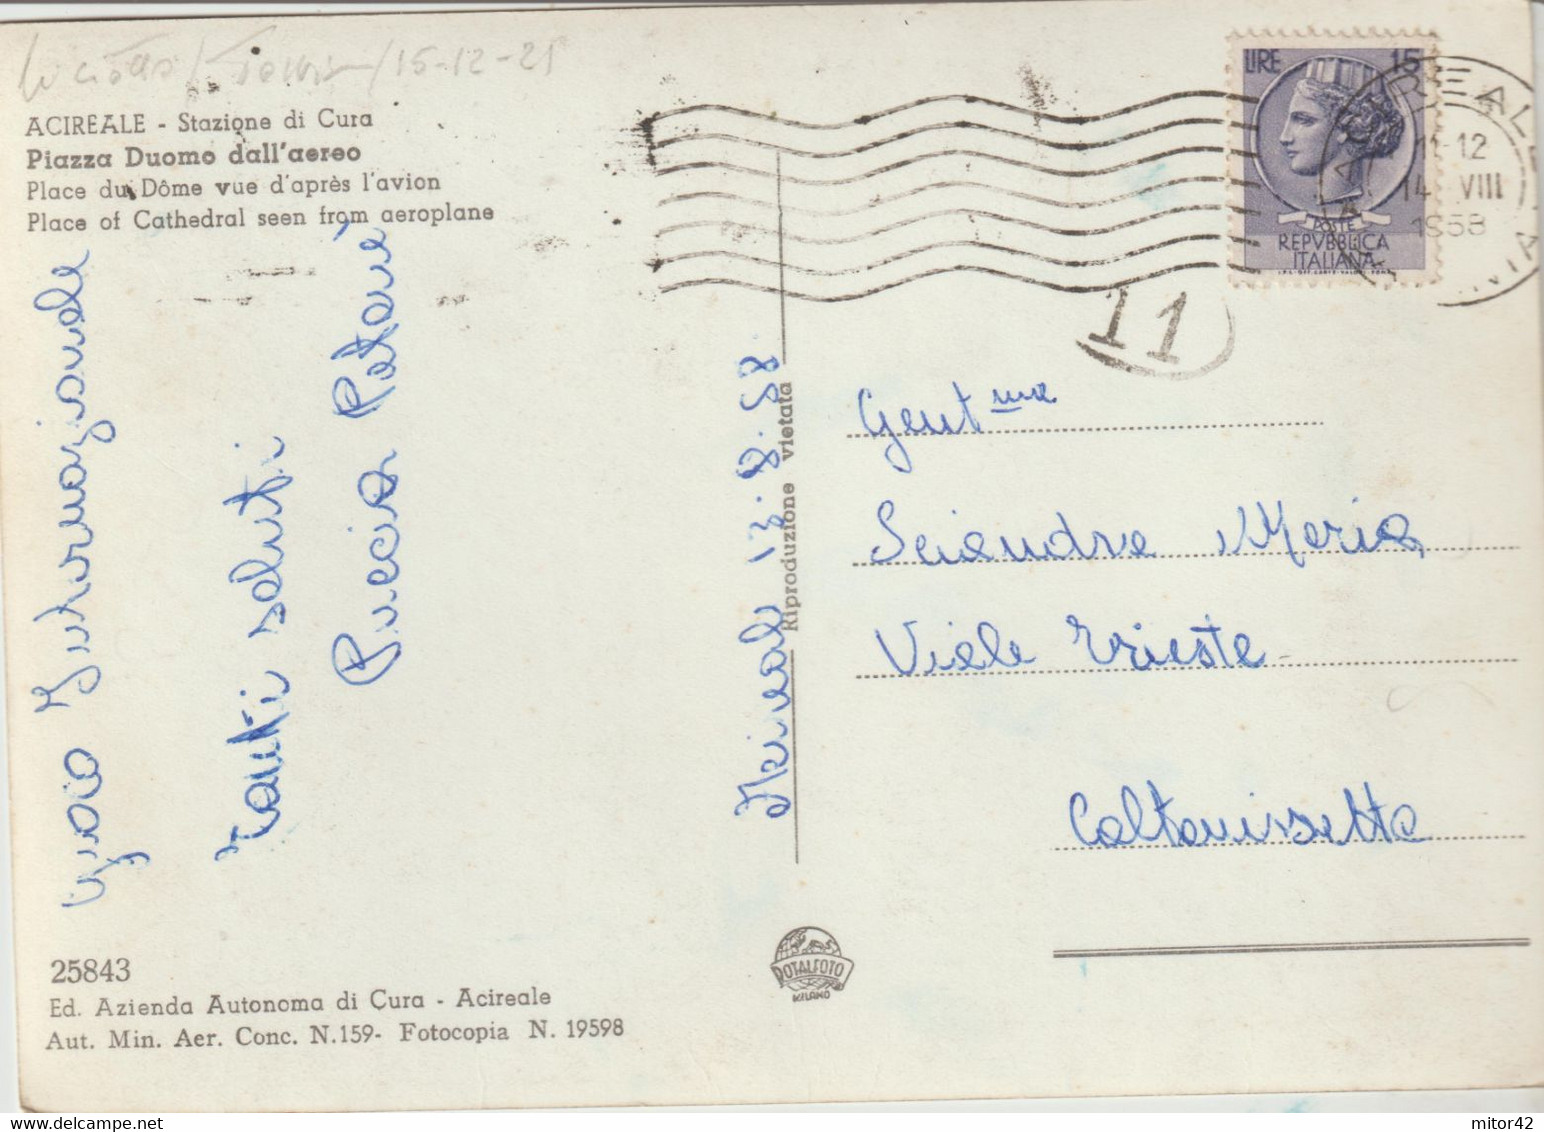 15-12-21
ACIREALE - Stazione di Cura
Piazza Duomo dall'aereo
Place du Dôme vue d'après l'avion
Place of Cathedral seen from aeroplane
LIRE 15
POSTE
REPVBBLICA
ITALIANA
11-12
14 VIII
1958
11
Gent ma
Sciandra Maria
Viale Trieste
Caltanissetta
Acireale 13.8.58.
Riproduzione vietata
Tanti saluti
Puccia Patanè
25843
Ed. Azienda Autonoma di Cura - Acireale
Aut. Min. Aer. Conc. N.159- Fotocopia N. 19598
ROTALFOTO
MILANO
mitor42